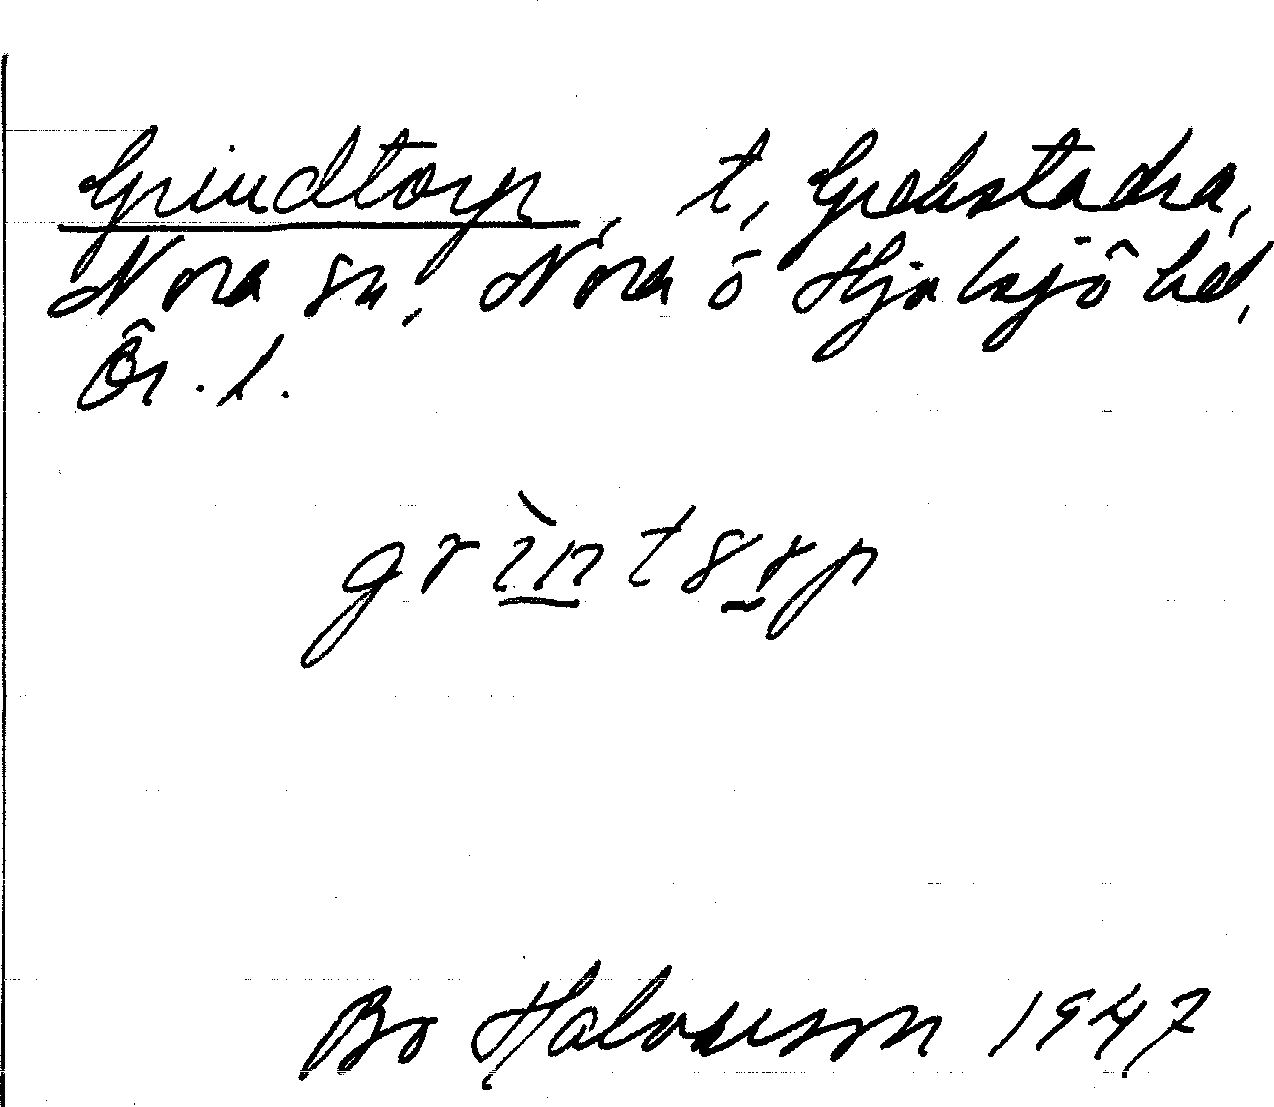 Grindtorp, t, Grekstadra,
Nora sn, Nora o Hjulsjö hd,
Ör. l.
grìntərp
Bo Halvarson 1947